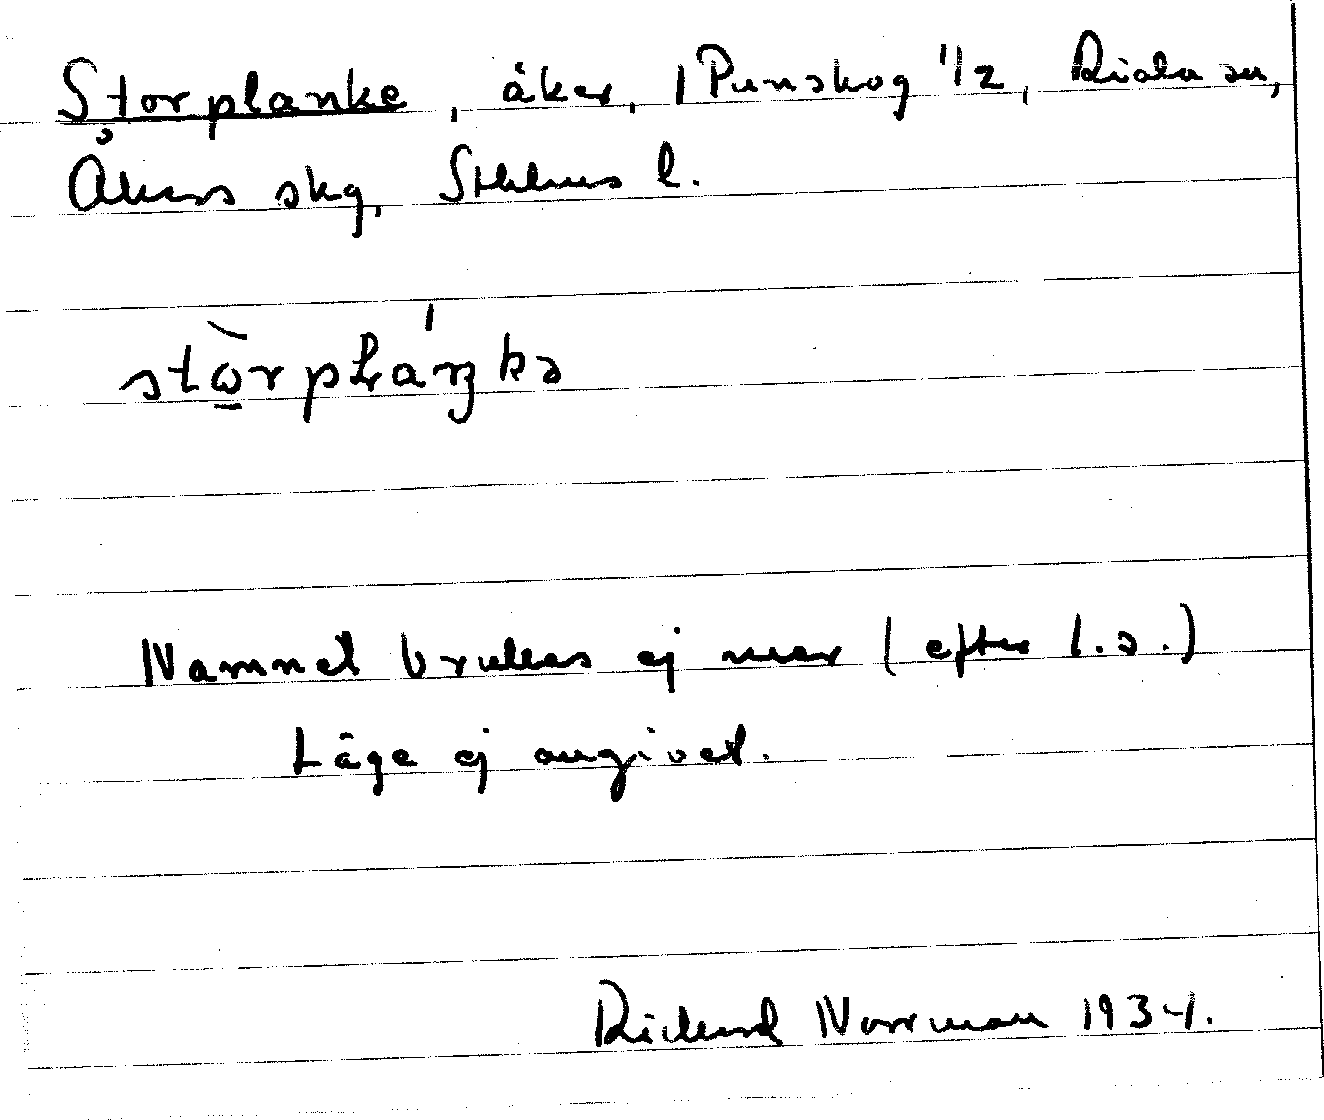 Storplanke, åker, Punskog 1/2, Riala sn,
Åkers skg, Sthlms l.
stòrpláŋkə
Namnet brukas ej mer (efter l.s.)
Läge ej angivet.
Richard Norrman 1934.